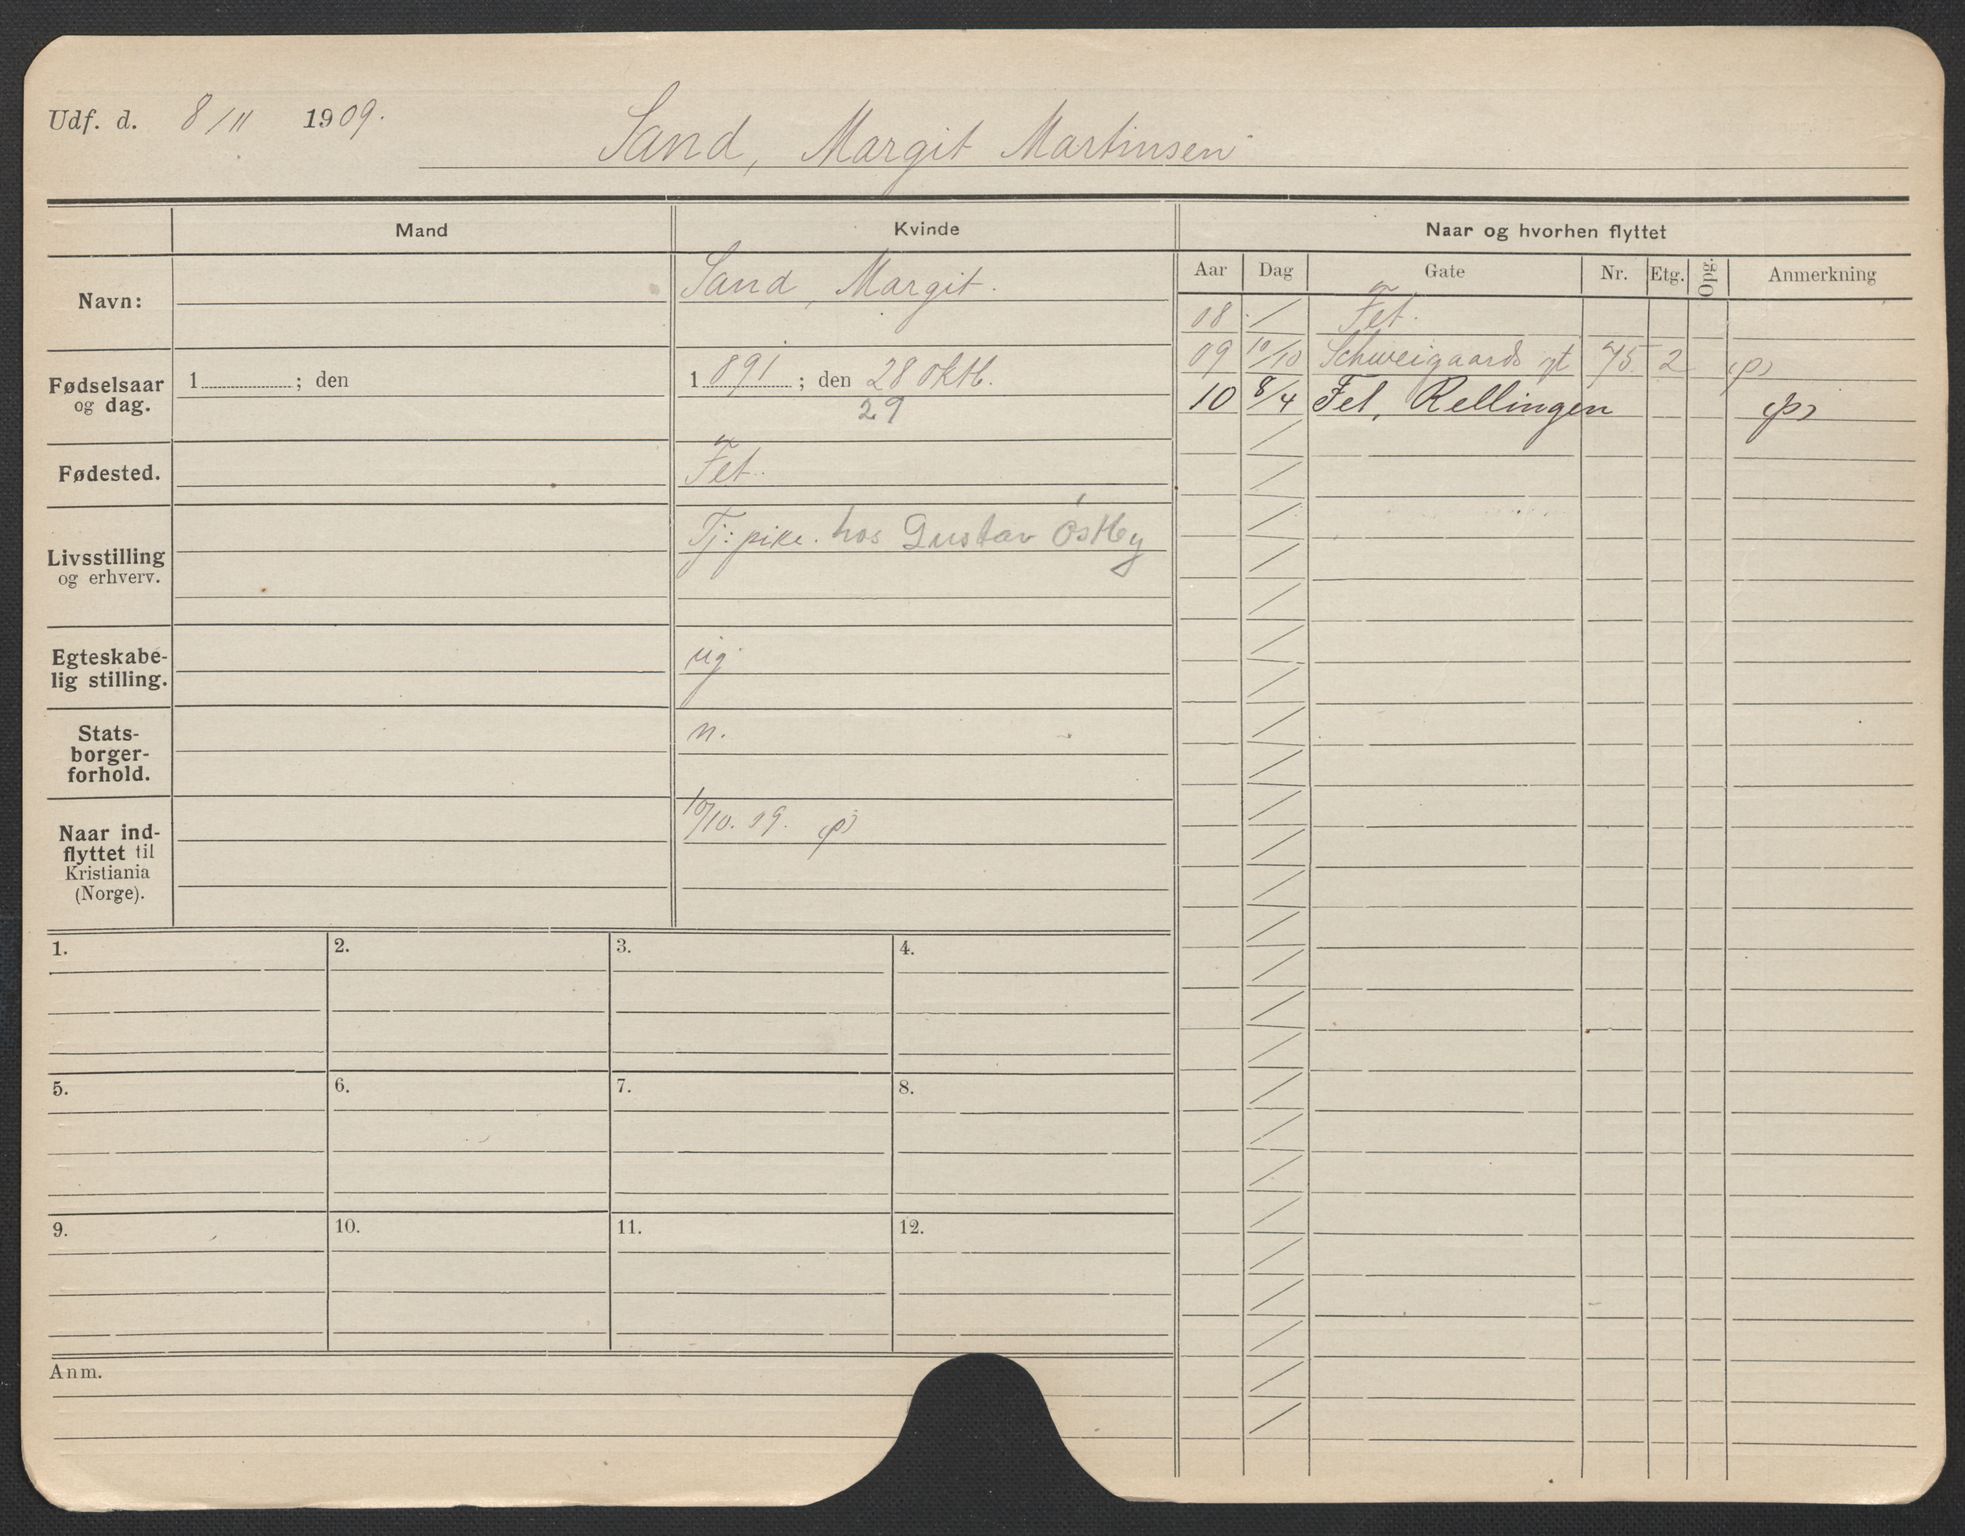 Udf. d. 8/11 1909.
Sand, Margit Martinsen
Mand
Kvinde
Naar og hvorhen flyttet
Aar Dag Gate Nr. Etg. Opg. Anmerkning
Navn:
Sand, Margit.
08 / Fet.
09 10/10 Schweigaards gt 75 2 (p)
10 8/4 Fet, Rellingen (p)
Fødselsaar
og dag.
1 ; den
1 891 ; den 28 oktb.
29
Fødested.
Fet.
Livsstilling
og erhverv.
Tj: pike. hos Gustav Østby
Egteskabe-
lig stilling.
ug
Stats-
borger-
forhold.
n.
Naar ind-
flyttet til
Kristiania
(Norge).
10/10. 09. (p)
1. 2. 3. 4.
5. 6. 7. 8.
9. 10. 11. 12.
Anm.